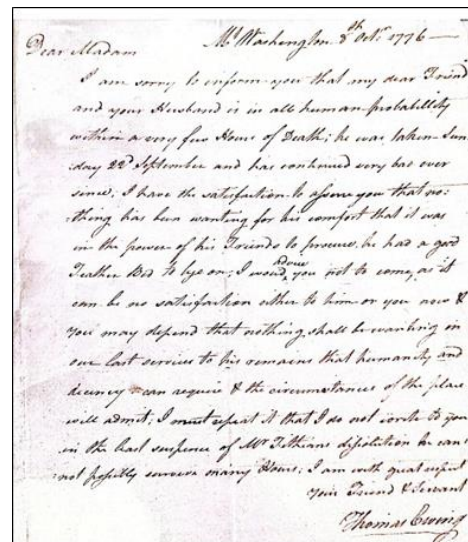 Mt Washington 8th Octr 1776
Dear Madam
I am sorry to inform you that my dear Friend
and your Husband is in all human probability
within a very few Hours of Death; he was taken Sun-
day 22d September and has continued very bad ever
since; I have the satisfaction to assure you that no-
thing has been wanting for his comfort that it was
in the power of his Friends to procure, he had a good
Feather Bed to lye on; I would advise you not to come, as it
can be no satisfaction either to him or you now &
you may depend that nothing shall be wanting in
our last services to his remains that humanity and
decency can require & the circumstances of the place
will admit; I must repeat it that I do not write to you
in the least suspence of Mr Fithians dissolution he can
not possibly survive many Hours; I am with great respect
your Friend & Servant
Thomas Ewing